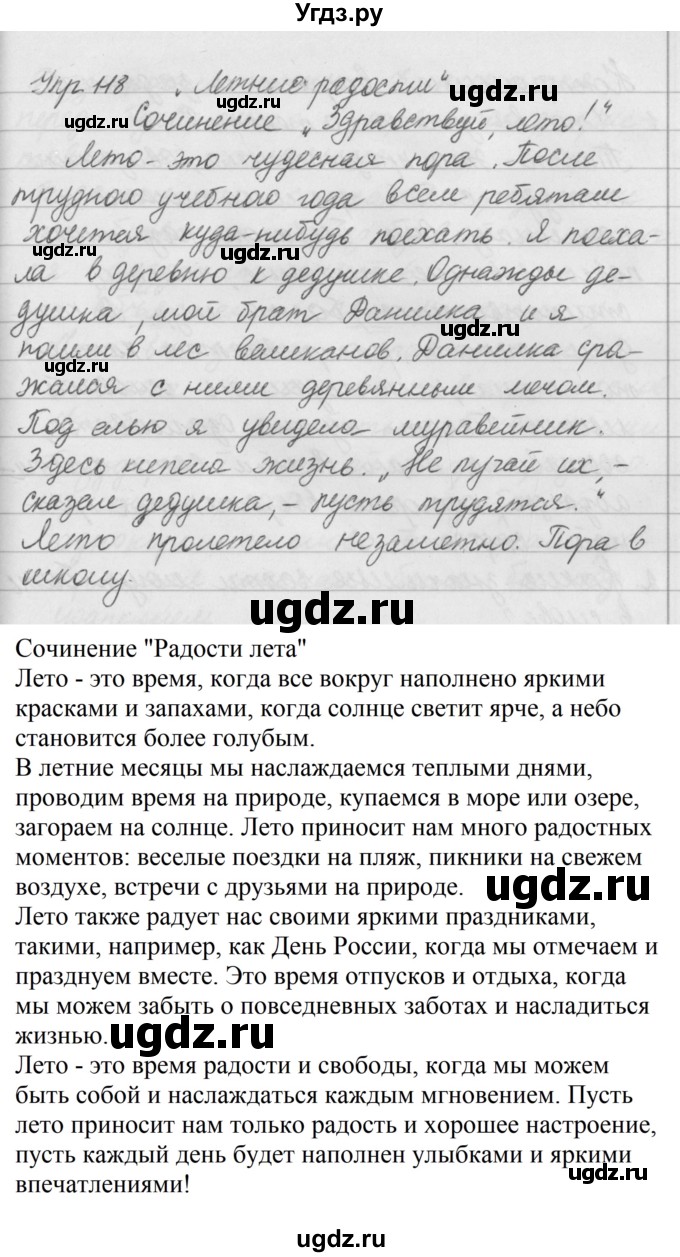 Угдз.ру
Упр 118 „Летние радости“
Сочинение „Здравствуй, лето!“
Лето - это чудесная пора. После
трудного учебного года всем ребятам
хочется куда-нибудь поехать. Я поеха-
ла в деревню к дедушке. Однажды де-
душка, мой брат Данилка и я
пошли в лес великанов. Данилка сра-
жался с ними деревянным мечом.
Под елью я увидела муравейник.
Здесь кипела жизнь. „Не пугай их, -
сказал дедушка, - пусть трудятся.“
Лето пролетело незаметно. Пора в
школу.
Сочинение "Радости лета"
Лето - это время, когда все вокруг наполнено яркими
красками и запахами, когда солнце светит ярче, а небо
становится более голубым.
В летние месяцы мы наслаждаемся теплыми днями,
проводим время на природе, купаемся в море или озере,
загораем на солнце. Лето приносит нам много радостных
моментов: веселые поездки на пляж, пикники на свежем
воздухе, встречи с друзьями на природе.
Лето также радует нас своими яркими праздниками,
такими, например, как День России, когда мы отмечаем и
празднуем вместе. Это время отпусков и отдыха, когда
мы можем забыть о повседневных заботах и насладиться
жизнью.
Лето - это время радости и свободы, когда мы можем
быть собой и наслаждаться каждым мгновением. Пусть
лето приносит нам только радость и хорошее настроение,
пусть каждый день будет наполнен улыбками и яркими
впечатлениями!
ugdz.ru
ugdz.ru
ugdz.ru
ugdz.ru
ugdz.ru
ugdz.ru
ugdz.ru
ugdz.ru
ugdz.ru
ugdz.ru
ugdz.ru
ugdz.ru